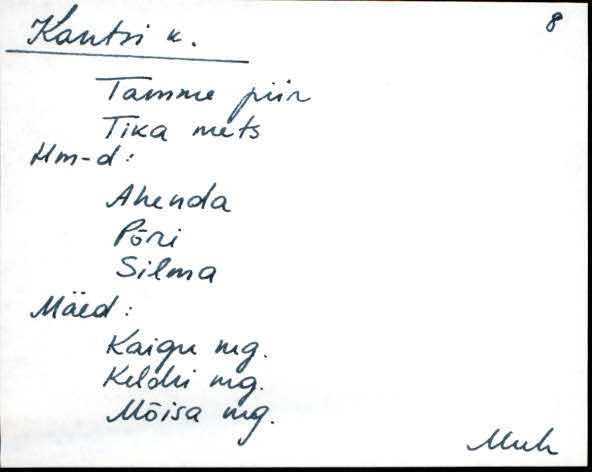 Kantsi k.
8
Tamme piir
Tika mets
Hm-d:
Ahenda
Põri
Silma
Mäed:
Kaigu mg.
Keldri mg.
Mõisa mg.
Muh